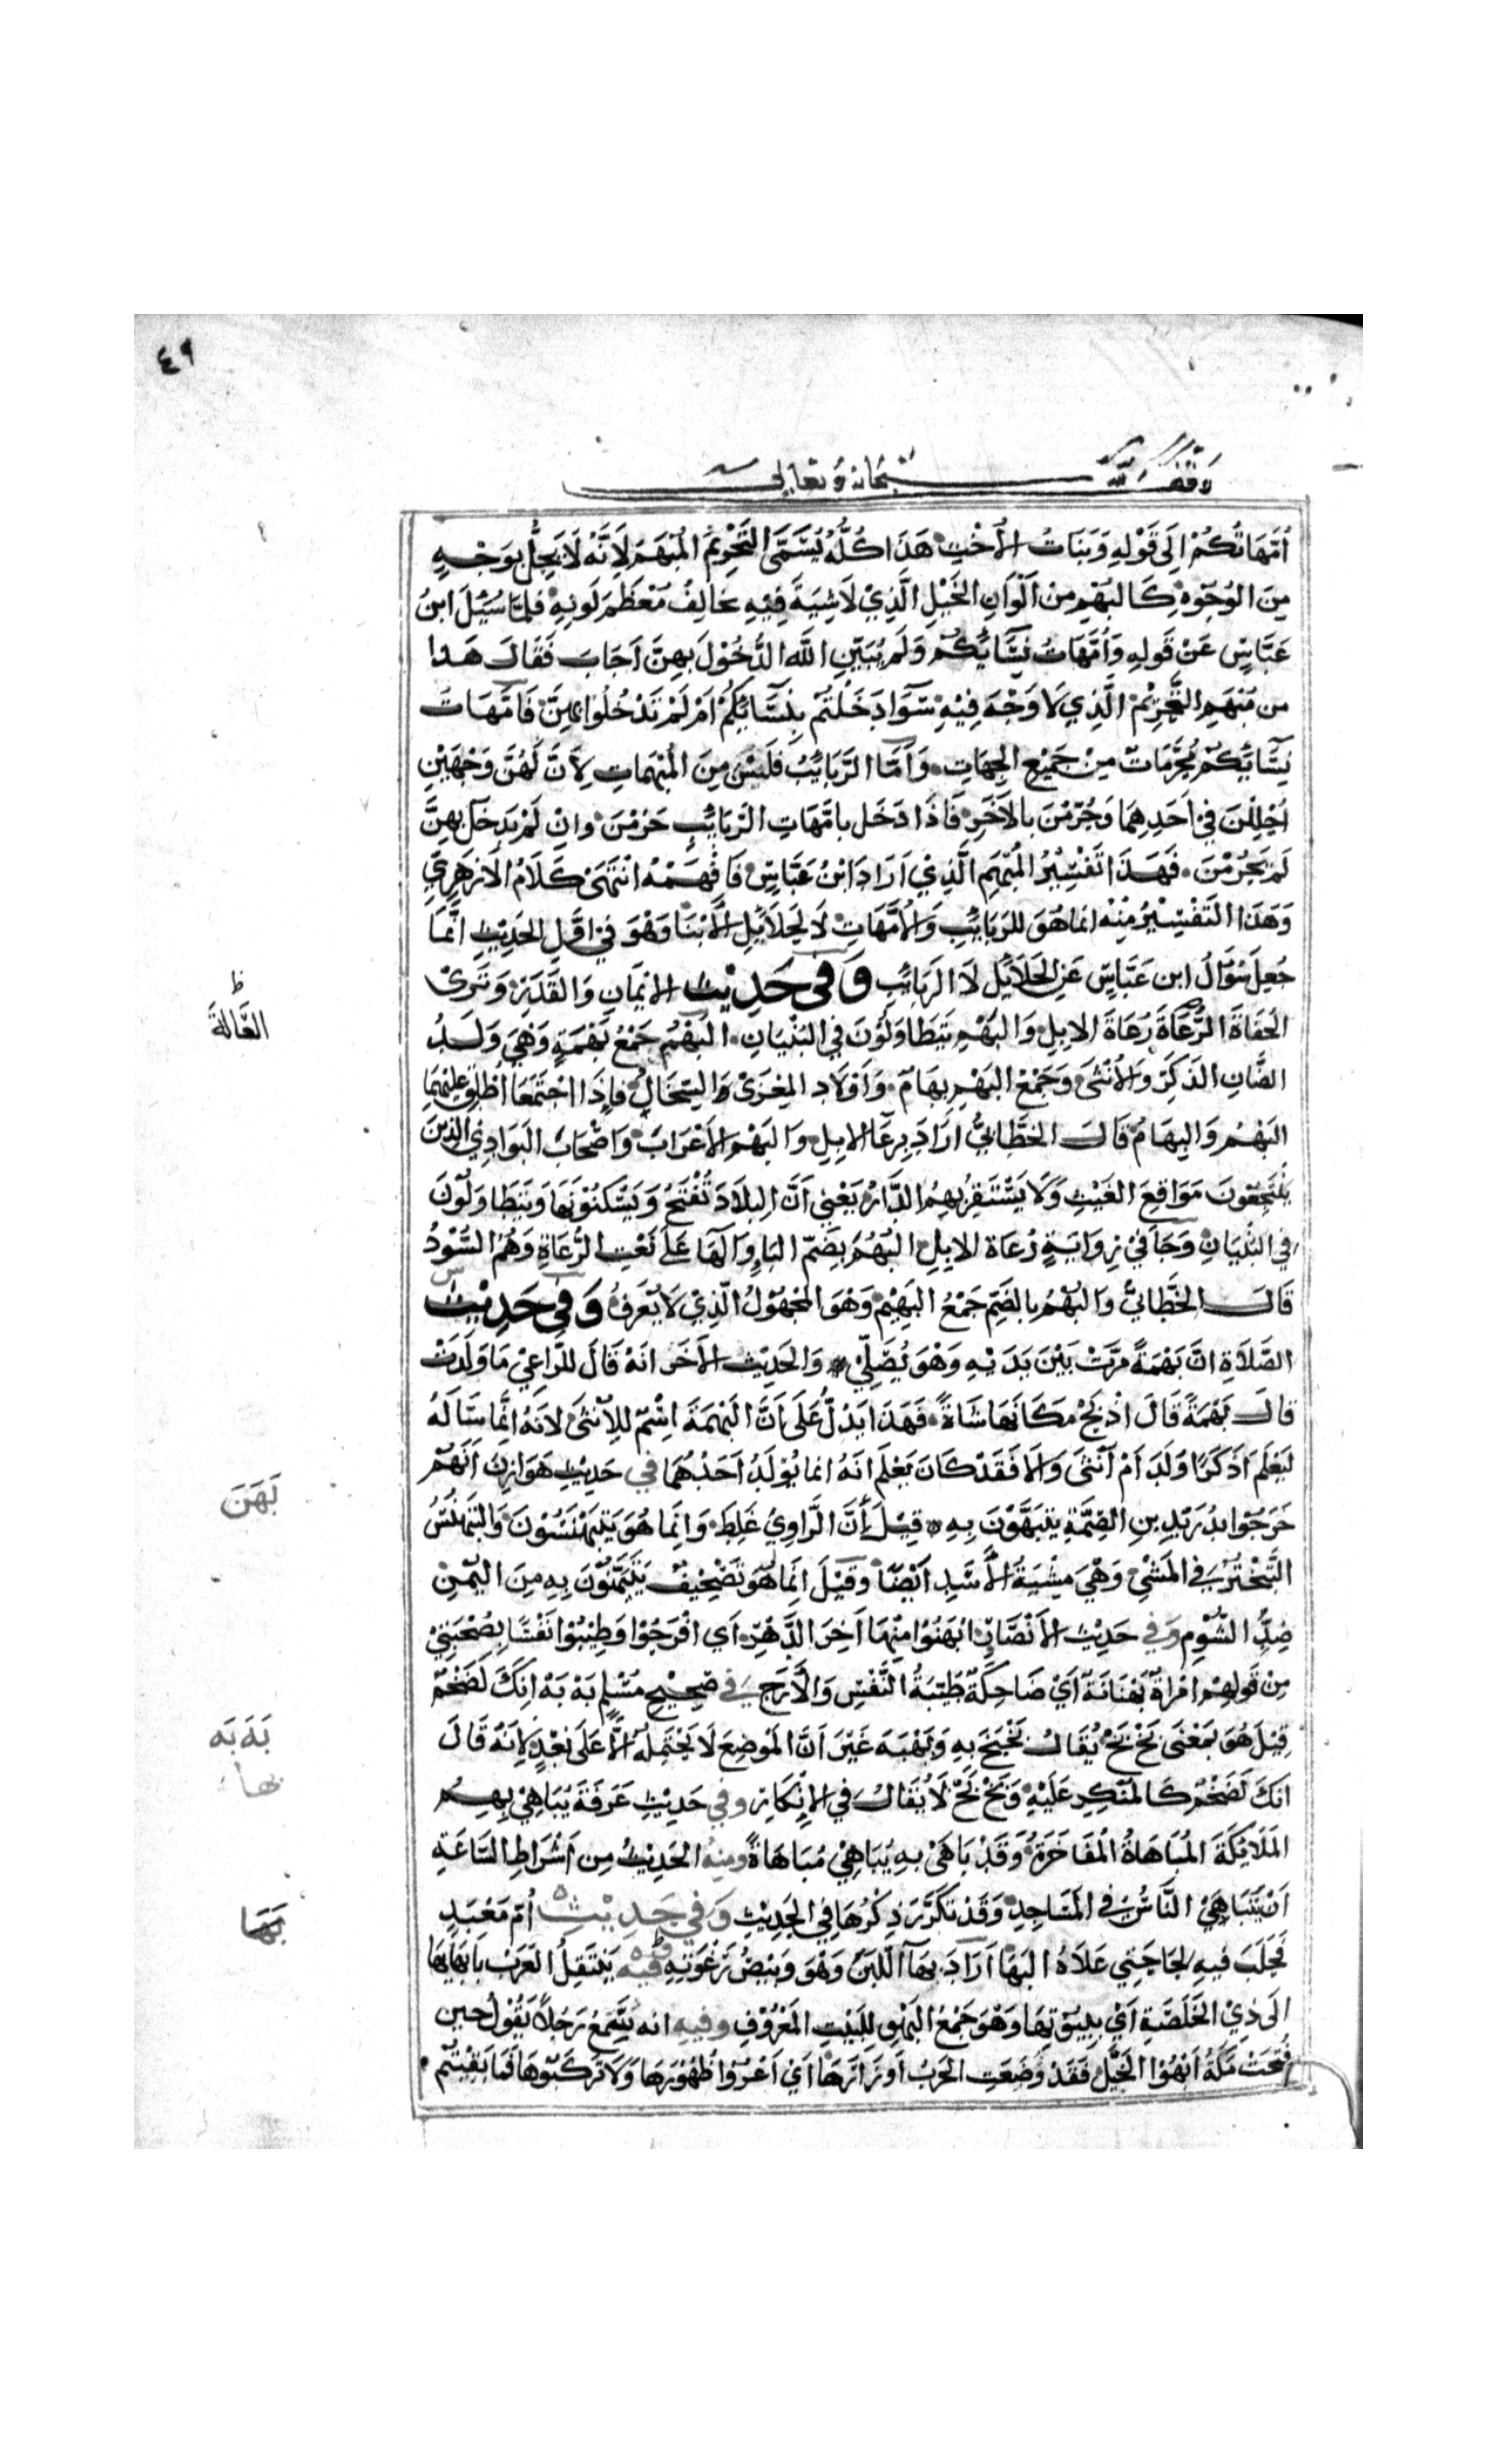 ٤٩
وقف لله سبحانه وتعالى
أُمَّهَاتُكُمْ إِلَى قَوْلِهِ وَبَنَاتُ الأُخْتِ هَذَا كُلُّهُ يُسَمَّى التَّحْرِيْمَ المُبْهَمَ لِأَنَّهُ لَا يَحِلُّ بِوَجْهٍ
مِنَ الوُجُوْهِ كَالبَهِيْمِ مِنْ أَلْوَانِ الخَيْلِ الَّذِيْ لَا شِيَةَ فِيْهِ تخَالِفُ مُعْظَمَ لَونِهِ فلمَّا سُئِلَ ابنُ
عَبَّاسٍ عَنْ قَولِهِ وَأُمَّهَاتُ نِسَائِكُمْ وَلَم يُبَيِّنِ اللّه الدُّخُوْلَ بِهِنَّ اَجَابَ فَقَالَ هَذا
من مُبْهَمِ التَّحْرِيْمِ الَّذِي لَا وَجْهَ فِيْهِ سَوَا دَخَلْتُمْ بِنِسَائِكُمْ اَمْ لَمْ تَدْخُلُوا بِهِنَّ فَامَّهَاتُ
نِسَائِكُمْ مُحَرَّمَاتٌ مِنْ جَمِيْعِ الجِهَاتِ وَاَمَّا الرَّبَائِبُ فَلَيْسَ مِنَ المُبْهَمَاتِ لِأَنَّ لَهُنَّ وَجْهَيْنِ
اُحْلِلْنَ فِي اَحَدِهِمَا وَحُرِّمْنَ بالآخَرِ فَاذَا دَخَل بامَّهَاتِ الرَّبَائِبِ حَرُمْنَ وانْ لَمْ يَدخل بِهِنَّ
لَمْ يَحْرُمْنَ فَهَذَا تَفْسِيْرُ المُبْهَمِ الَّذِيْ اَرَادَ ابْنُ عَبَّاسٍ فَافْهَمْهُ انْتَهَى كَلَامُ الازهَرِيِّ
وَهَذَا التَّفْسِيْرُ مِنْهُ انما هُوَ للرَّبَائِبِ وَالأُمَّهَاتِ لَا لِحَلَائِلِ الأبْنَا وَهْوَ فِي اوَّلِ الحَدِيْثِ اِنَّمَا
جَعَلَ سُؤَالَ ابن عَبَّاسٍ عَنِ الحَلَائِلِ لَا الرَّبَائِبِ وَفي حَدِيْث الايْمَانِ وَالقَدَرِ وَتَرَىْ
الحُفَاةَ الرُّعَاةَ رُعَاةَ الابِلِ وَالبَهْمِ يَتَطَاوَلُوْنَ فِي البُنْيَانِ البَهْمُ جَمْعُ بَهْمَةٍ وَهِيَ وَلَدُ
الضَّانِ الذَكَرِ وَالأُنْثَى وَجَمْعُ البَهْمِ بِهَامٌ وَاَوْلَادُ المِعْزَىْ وَالسِّخَالُ فاِذَا اجْتَمَعَا اُطْلِقَ عليْهِمَا
البَهْمُ وَالبِهَامُ قَالَ الخَطَّابِيُّ اَرَادَ بِرِعَا الابِلِ وَالبَهْمِ الأعْرَابَ وَاصْحَابَ البَوَادِيْ الذِيْنَ
يَنْتَجِعُوْنَ مَوَاقِعَ الغَيْثِ وَلَا يَسْتَقِرُ بهِمُ الدَّارُ يَعْنِي اَنَّ البِلَادَ تُفْتَحُ وَيَسْكُنُوْنَهَا وَيَتَطَاوَلُوْنَ
فِي البُنْيَانِ وَجَا فِي رِوَايَةٍ رُعَاة الابِلِ البُهُمُ بِضَمِّ البَا وَالهَا عَلى نَعْتِ الرُّعَاةِ وَهُمُ السُّوْدُ
قَالَ الخَطَّابيُّ وَالبُهْمُ بِالضَّمِّ جَمْعُ البَهِيْمِ وَهْوَ المَجْهُوْلُ الَّذِيْ لَا يُعْرَفُ وَفي حَدِيْث
الصَّلَاةِ انَّ بَهْمَةً مَرَّتْ بَيْنَ يَدَيْهِ وَهْوَ يُصَلِّيْ وَالحَدِيْث الآخَر انَهُ قَالَ للرَّاعِيْ مَا وَلَّدْتَ
قالَ بَهْمَةً قَالَ اذْبَحْ مَكَانَهَا شَاةً فَهَذَا يَدُلُّ عَلَى اَنَّ البَهْمَةَ اِسْمٌ لِلأُنْثَى لانَهُ انَّمَا سَالَهُ
لِيَعْلَمَ اَذَكَرًا وَلَّدَ اَمْ اُنْثَى وَالا فَقَدْ كَانَ يَعْلَم انَهُ انما يُوْلَدُ اَحَدُهُمَا في حَدِيْثِ هَوَازِنَ اَنَّهُمْ
خَرَجُوا بِدُرَيْدِ بنِ الصِّمَّةِ يتبَهَّوْنَ بِهِ قِيْلَ اِنَّ الرَّاوِيْ غَلِطَ وَانِّمَا هُوَ يَتَبَهْنَسُوْنَ وَالتَبَهْنُسُ
التَّبَخْتُرُ فِي المَشْيِ وَهْيَ مِشْيَةُ الأسَدِ اَيْضًا وَقِيْلَ انِّمَا هُوَ تَصْحِيْفُ يَتَيَمَّنُوْنَ بِهِ مِنَ اليُمْنِ
ضِدِّ الشُّوْمِ وفي حَدِيْث الأنْصَارِ ابْهَنُوْا مِنْهَا آخِرَ الدَّهْرِ اَي افْرَحُوْا وَطِيْبُوْا نَفْسًا بِصُحْبَتِيْ
مِنْ قَولهِمْ امْرَاةٌ بَهْنَانَةٌ اَيْ ضَاحِكَةٌ طَيِّبَةُ النَّفْسِ وَالأرَجِ في صَحِيْحِ مُسْلِمٍ بَهْ بَهْ انِكَ لَضَخْمٌ
قِيْلَ هُوَ بمَعْنَى بَخْ بَخْ يُقَالُ بَخْبَخَ بِهِ وَبَهْبَهَ غَيْرَ اَنَّ المَوْضِعَ لَا يَحْتَمِلُهُ الَّا عَلَى بُعْدٍ لِانَّهُ قَالَ
انَكَ لَضَخْمٌ كَالمُنْكِرِ عَلَيْهِ وَبَخْ بَخْ لَا يُقَالُ فِي الإنْكَارِ وفي حَدِيْثِ عَرَفَةَ يُبَاهِيْ بِهِمُ
المَلَائِكَةَ المُبَاهَاةُ المُفَاخَرَةُ وَقَدْ بَاهَىْ بِهِ يُبَاهِيْ مُبَاهَاةً ومنهُ الحَدِيْثُ مِن اَشْرَاطِ السَّاعَةِ
اَنْ يَتَبَاهَىْ النَّاسُ فِي المَسَاجِدِ وَقَدْ تَكَرَّرَ ذِكْرُهَا فِي الحَدِيْثِ وَفي حَدِيْث اُمِّ مَعْبَدٍ
فَحَلَبَ فيهِ ثجَّا حَتَّى عَلَاهُ البَهَا اَرَادَ بهَآ اللَّبَنِ وَهْوَ وَبِيْضُ رُغْوَتِهِ وفيه يَنْتَقِلُ العَرَبُ بابْهَايهَا
الَى ذِيْ الخَلَصَةِ اَيْ بِبِيُوْتِهَا وَهْوَ جَمْعُ البَهْوِ لِلبَيْتِ المَعْرُوْفِ وفيهِ انه سَمِعَ رَجُلًا يَقُوْلُ حِيْن
فُتِحَتْ مَكَّةُ اَبْهُوْا الخَيْلَ فَقَدْ وَضَعَتِ الحَرْبُ اَوْزَارَهَا اَيْ اَعْرُوْا ظُهُوْرَهَا وَلَا تَركَبُوْهَا فَمَا بَقِيْتُمْ
ظ
العَالةَ
بَهَنَ
بَهَ بَه
بها
بَهَا